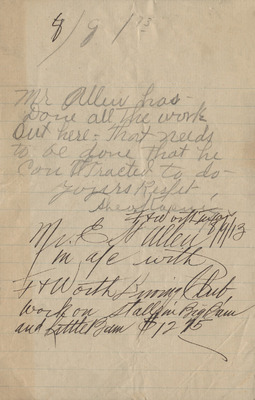 8/9/13
Mr Allen has
Done all the work
Out here - That needs
to be done that he
Contracted to do -
Yours Respt
Ft Worth
8/9/13
Mr. E Allen
In a/c with
Ft Worth Driving Club
Work on Stalls in Big Barn
and Little Barn $12 95